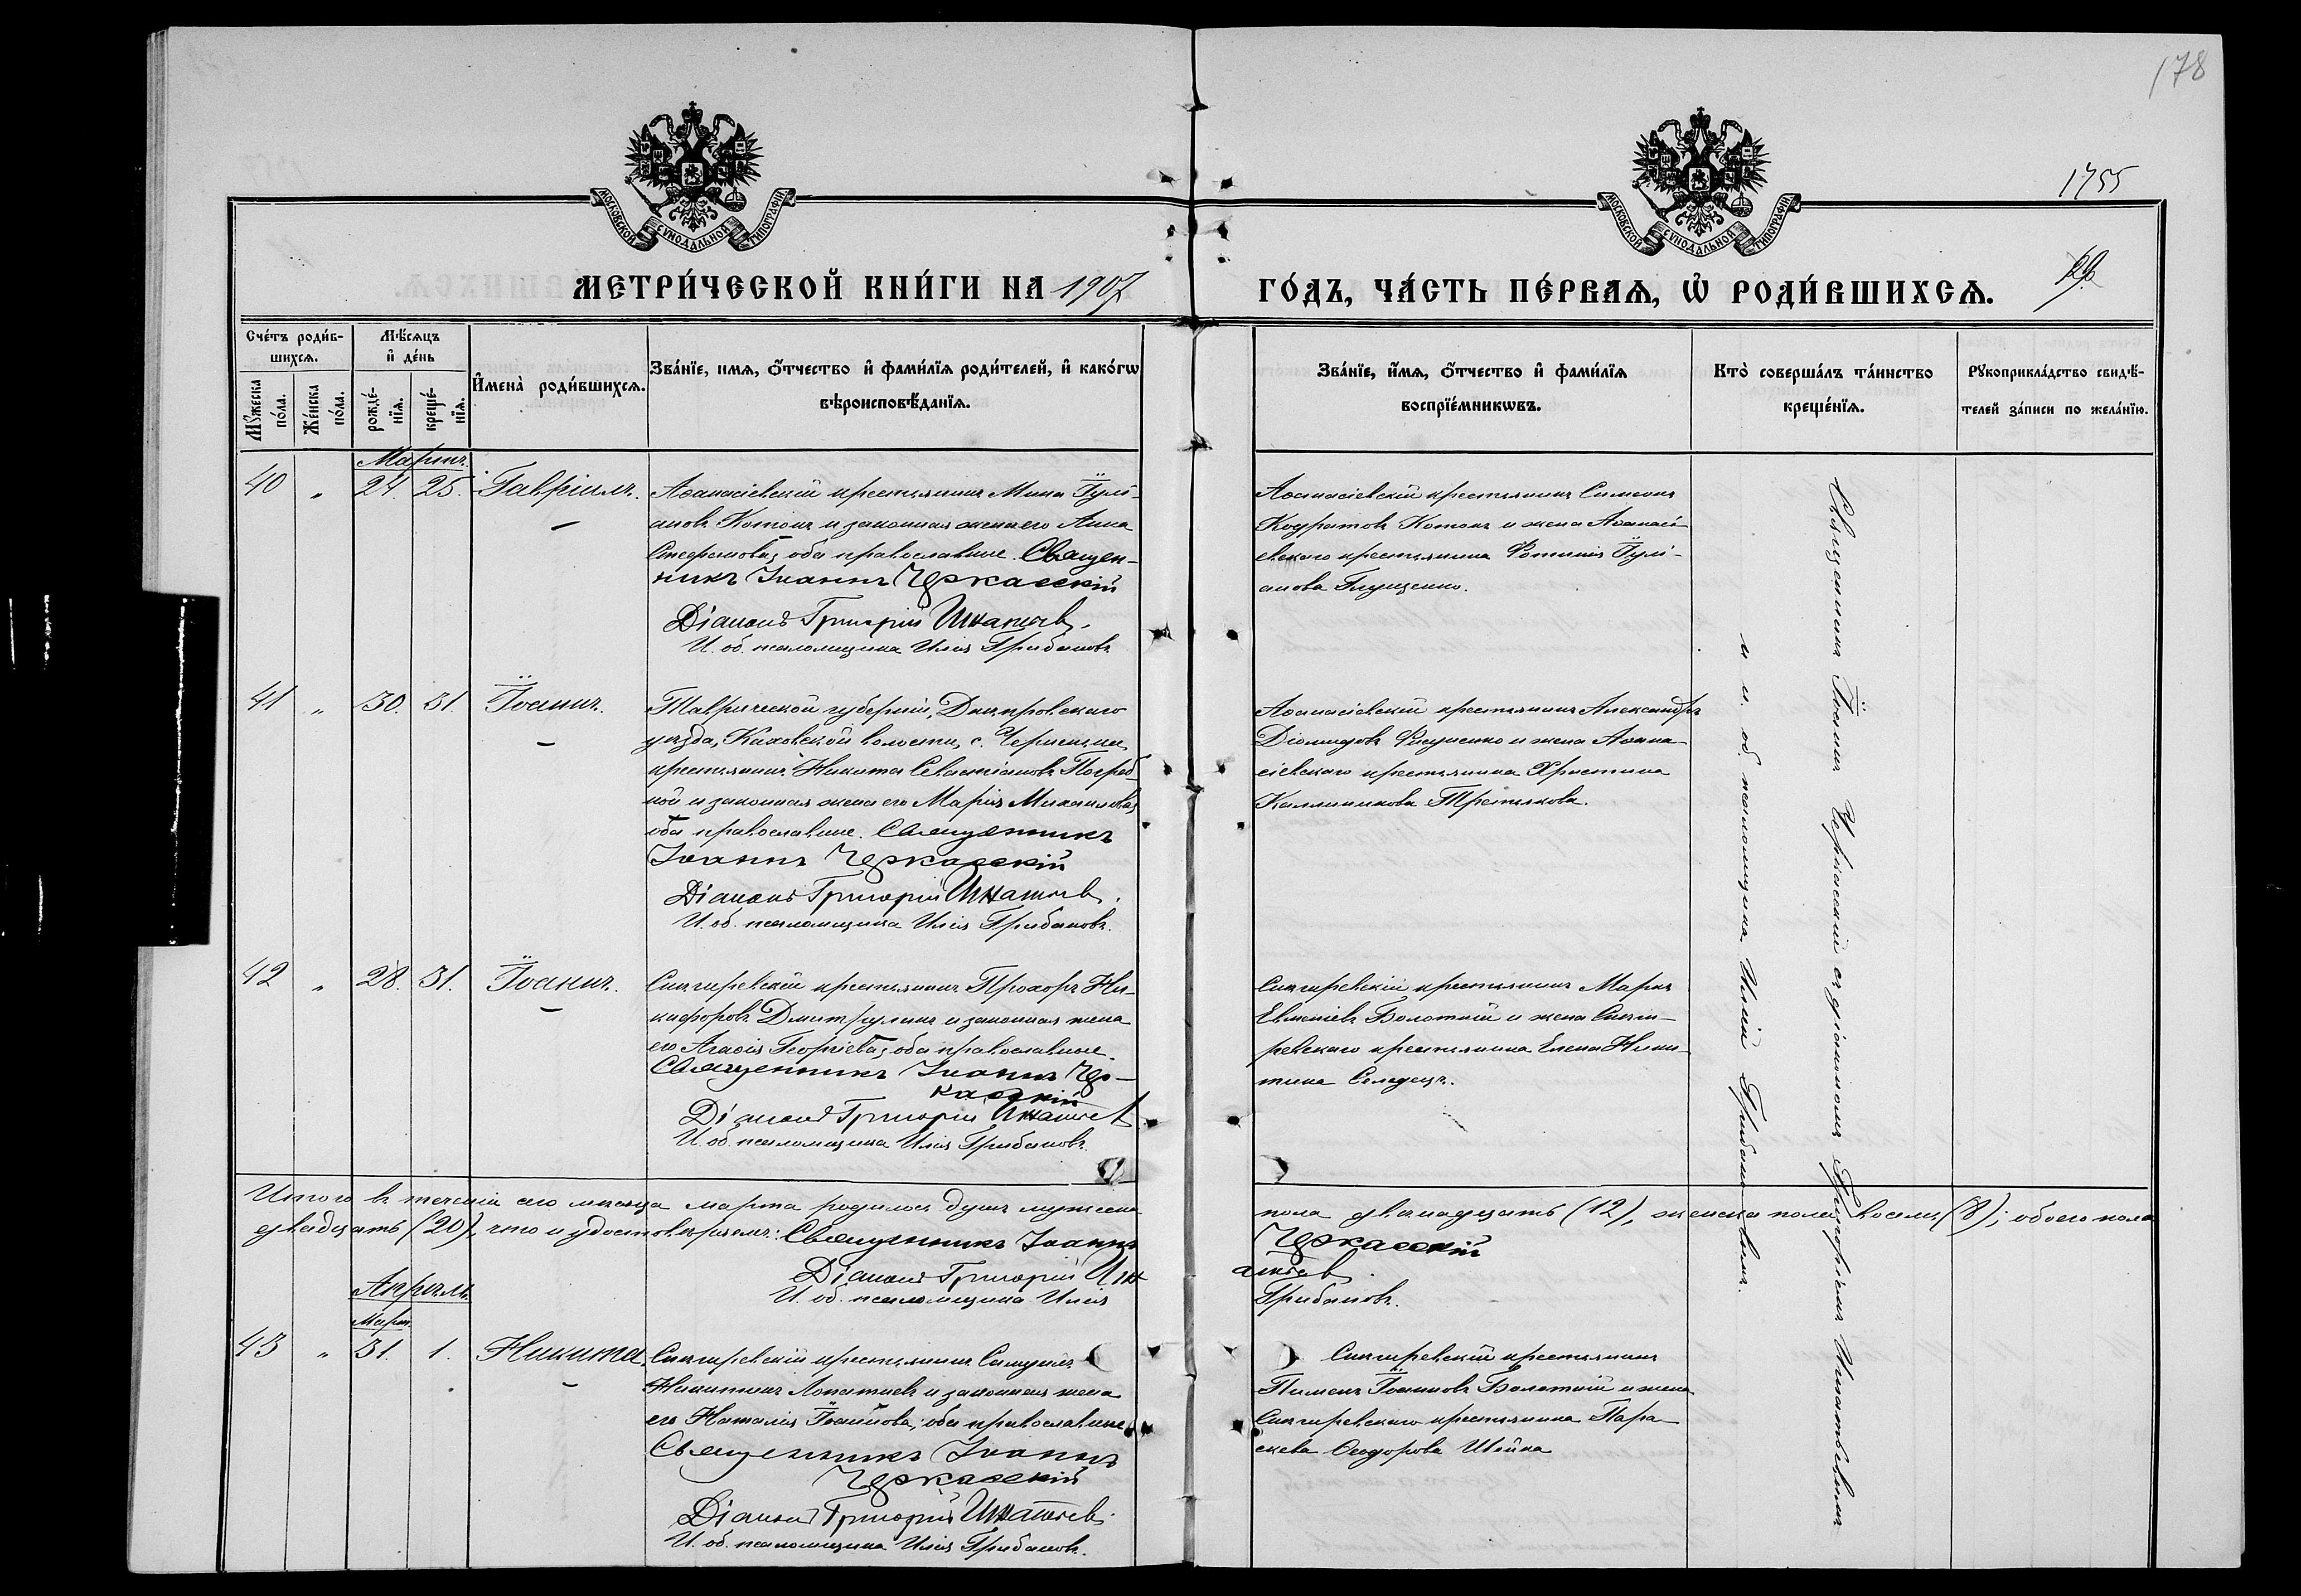 178
1755
МОСКОВСКОЙ СУНОДАЛЬНОЙ ТИПОГРАФІИ
МОСКОВСКОЙ СУНОДАЛЬНОЙ ТИПОГРАФІИ
МЕТРИ́ЧЕСКОЙ КНИ́ГИ НА 1907
ГО́ДЪ, ЧА́СТЬ ПЕ́РВАѦ, Ѡ҆ РОДИ́ВШИХСѦ.
Сче́тъ роди́в-
шихсѧ.
Мѣ́сѧцъ
и҆ де́нь
Мꙋ́жеска
по́ла.
Же́нска
по́ла.
рожде́-
нїѧ.
креще́-
нїѧ.
И҆мена̀ роди́вшихсѧ.
Зва́нїе, имѧ, ѻ҆́тчество и҆ фами́лїѧ роди́телей, и҆ како́гѡ
вѣроисповѣ́данїѧ.
Зва́нїе, и҆́мѧ, ѻ҆́тчество и҆ фами́лїѧ
воспрїе́мникѡвъ.
Кто̀ соверша́лъ та́инство
креще́нїѧ.
Рꙋкоприкла́дство свидѣ́-
телей за́писи по жела́нїю.
Мартъ.
40 " 24. 25. Гавріилъ.
Аѳанасіевскій крестьянинъ Мина Іулі-
ановъ Котокъ и законная жена его Анна
Стефанова, оба православные. Священ-
никъ Іоаннъ Черкасскій
Діаконъ Григорій Игнатьевъ.
И. об. псаломщика Илія Грибановъ.
Аѳанасіевскій крестьянинъ Симеонъ
Кодратовъ Котокъ и жена Аѳанасі-
евскаго крестьянина Фотинія Іулі-
анова Глущенко.
41 " 30. 31. Іоаннъ.
Таврической губерніи, Днѣпровскаго
уѣзда, Каховской волости, с. Чернянки
крестьянинъ Никита Севастіановъ Погреб-
ной и законная жена его Марія Михаилова,
оба православные. Священникъ
Іоаннъ Черкасскій
Діаконъ Григорій Игнатьевъ.
И. об. псаломщика Илія Грибановъ.
Аѳанасіевскій крестьянинъ Александръ
Діомидовъ и жена Аѳана-
сіевскаго крестьянина Христина
Каллиникова Третьякова.
42 " 28. 31. Іоаннъ.
Снигиревскій крестьянинъ Прохоръ Ни-
кифоровъ Дмитрулинъ и законная жена
его Агаѳія Георгіева, оба православные.
Священникъ Іоаннъ Чер-
касскій
Діаконъ Григорій Игнатьевъ
И. об. псаломщика Илія Грибановъ.
Снигиревскій крестьянинъ Маркъ
Евменіевъ Болотній и жена Сниги-
ревскаго крестьянина Елена Ники-
тина Селедецъ.
Священникъ Іоаннъ Черкасскій съ діакономъ Григоріемъ Игнатьевымъ
и и. об. псаломщика Иліей Грибановымъ.
Итого въ теченіи сего мѣсяца марта родилось душъ мужеска пола двѣнадцать (12), женска пола восемь (8); обоего пола
двадцать (20), что и удостовѣряемъ: Священникъ Іоаннъ Черкасскій
Діаконъ Григорій Игнатьевъ.
И. об. псаломщика Илія Грибановъ.
Апрѣль.
Март.
43 " 31. 1. Никита.
Снигиревскій крестьянинъ Самуилъ
Никитинъ Лопатневъ и законная жена
его Наталія Іоаннова, оба православные.
Священникъ Іоаннъ
Черкасскій
Діаконъ Григорій Игнатьевъ.
И. об. псаломщика Илія Грибановъ.
Снигиревскій крестьянинъ
Пименъ Іоанновъ Болотній и жена
Снигиревскаго крестьянина Пара-
скева Ѳеодорова Швайка